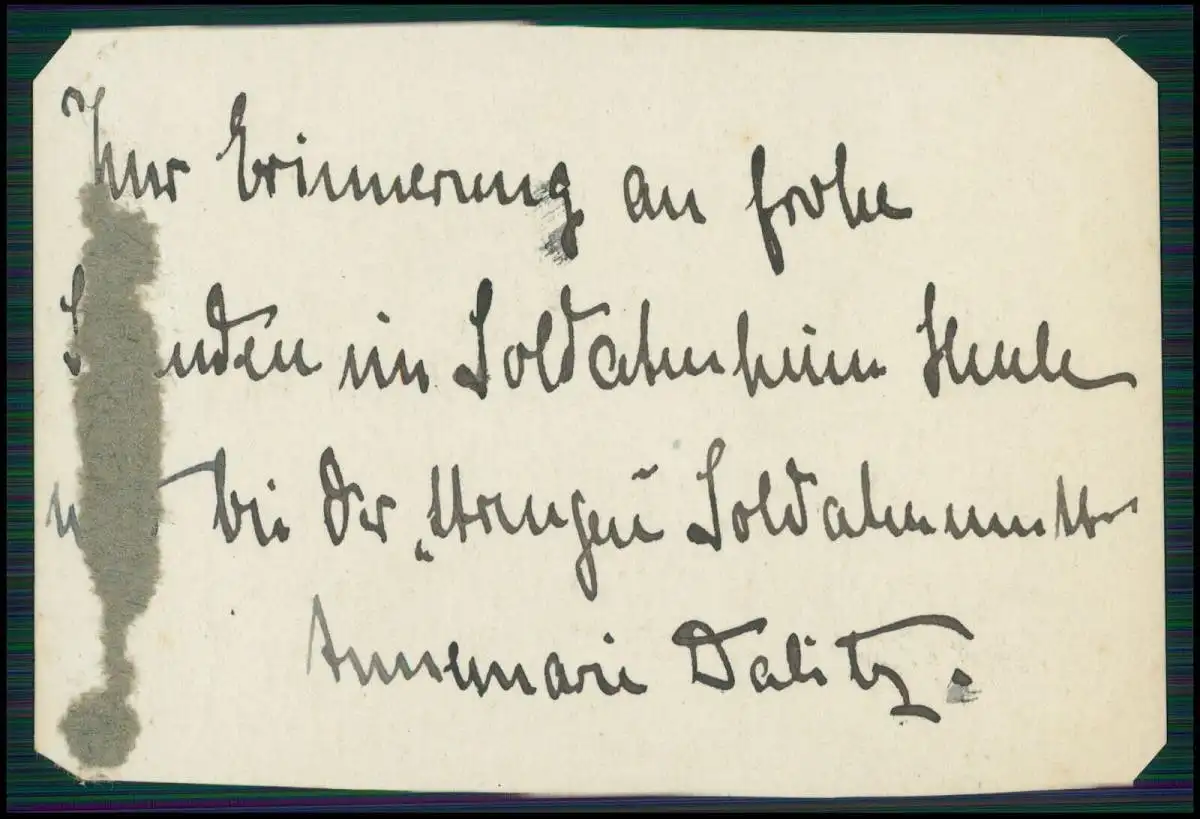 Zur Erinnerung an frohe
Stunden im Soldatenheim Heule
und bei der „strengen" Soldatenmutter
Annemarie Dalitz.